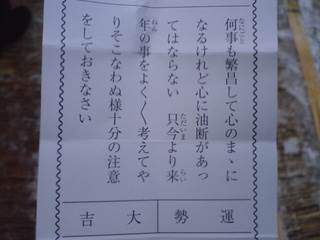 何事も繁昌して心のまゝに
なるけれど心に油断があっ
てはならない 只今より来
年の事をよく〱考えてや
りそこなわぬ様十分の注意
をしておきなさい
運勢 大吉